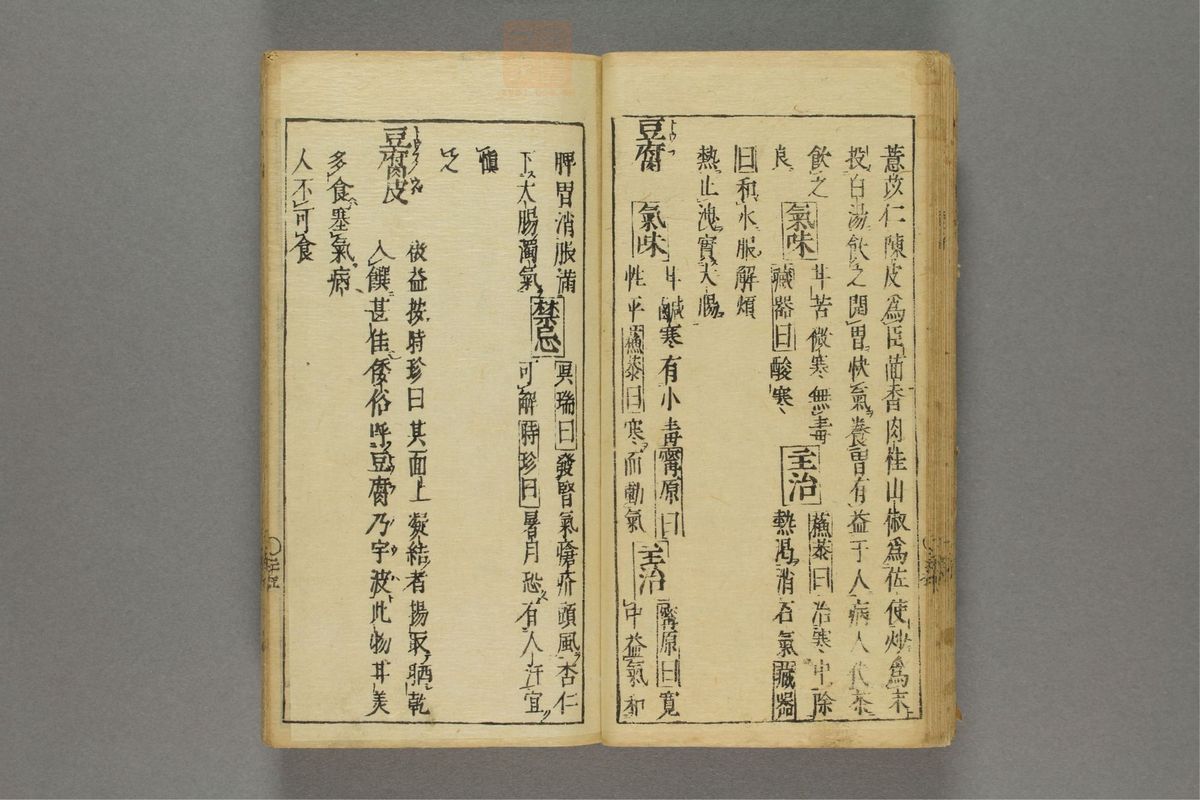 薏苡仁陳皮爲臣茴香肉桂山椒爲佐使炒爲末
投白湯飲之開胃快氣養胃有益于人病人代茶
飲之
氣味
甘苦微寒無毒
藏器曰酸寒
主治
蘇恭曰治寒中除
熱渇消石氣藏器
曰和水服解煩
熱止洩實大腸
豆腐 トウフ
氣味
甘鹹寒有小毒寗原曰
性平蘇恭曰寒而動氣
主治
寗原曰寛
中益氣和
脾胃消脹滿
下大腸濁氣
禁忌
呉瑞曰發腎氣瘡疥頭風杏仁
可解時珍曰暑月恐有人汗宜
愼
之
豆腐皮
益按時珍曰其面上凝結者揚取晒乾
入饌甚佳倭俗呼豆腐乃宇波此物耳美
多食塞氣病
人不可食